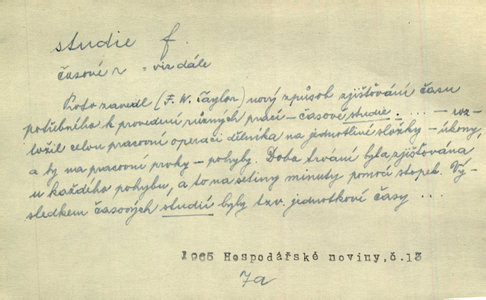 studie f.
časové r = viz dále
Proto zavedl (F. W. Taylor) nový způsob zjišťování času
potřebného k provedení různých prací – časové studie ... – roz-
ložil celou pracovní operaci dělníka na jednotlivé složky – úkony,
a ty na pracovní prvky – pohyby. Doba trvání byla zjišťována
u každého pohybu, a to na setiny minuty pomocí stopek. Vý-
sledkem časových studií byly tzv. jednotkové časy ...
1965 Hospodářské noviny, č.13
7a